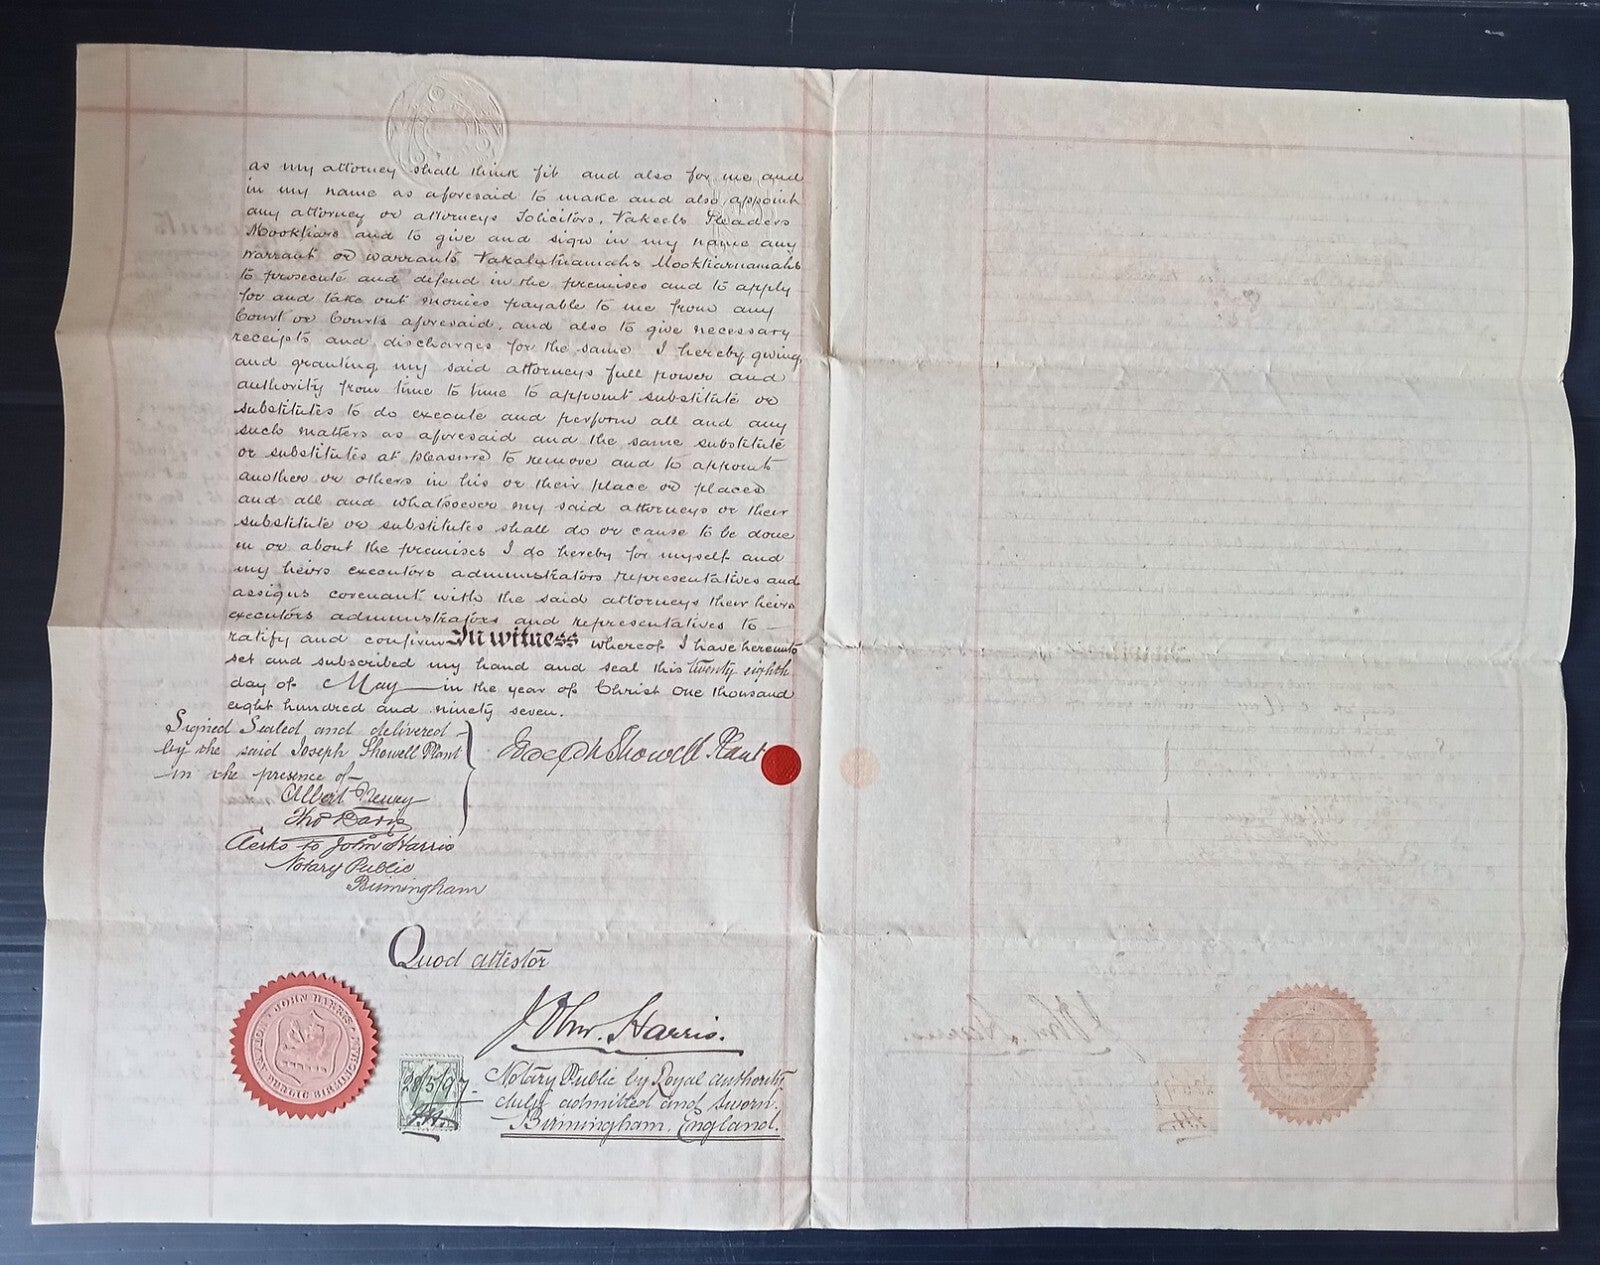 as my attorney shall think fit and also for me and
in my name as aforesaid to make and also appoint
any attorney or attorneys Solicitors, Vakeels Pleaders
Mooktiars and to give and sign in my name any
Warrant or warrants Vakalutnamahs Mooktiarnamahs
to prosecute and defend in the premises and to apply
for and take out monies payable to me from any
Court or Courts aforesaid, and also to give necessary
receipts and discharges for the same I hereby giving
and granting my said attorneys full power and
authority from time to time to appoint substitute or
substitutes to do execute and perform all and any
such matters as aforesaid and the same substitute
or substitutes at pleasure to remove and to appoint
another or others in his or their place or places
and all and whatsoever my said attorneys or their
substitute or substitutes shall do or cause to be done
in or about the premises I do hereby for myself and
my heirs executors administrators representatives and
assigns covenant with the said attorneys their heirs
executors administrators and representatives to
ratify and confirm In witness whereof I have hereunto
set and subscribed my hand and seal this twenty eighth
day of May in the year of Christ One thousand
eight hundred and ninety seven.
Signed Sealed and delivered
by the said Joseph Showell Plant
in the presence of
Joseph Showell Plant
Albert
Tho
Clerks to John Harris
Notary Public
Birmingham
Quod attestor
John Harris.
JOHN HARRIS
NOTARY PUBLIC BIRMINGHAM
28/5/97
J.H.
Notary Public by Royal authority
duly admitted and sworn.
Birmingham, England.